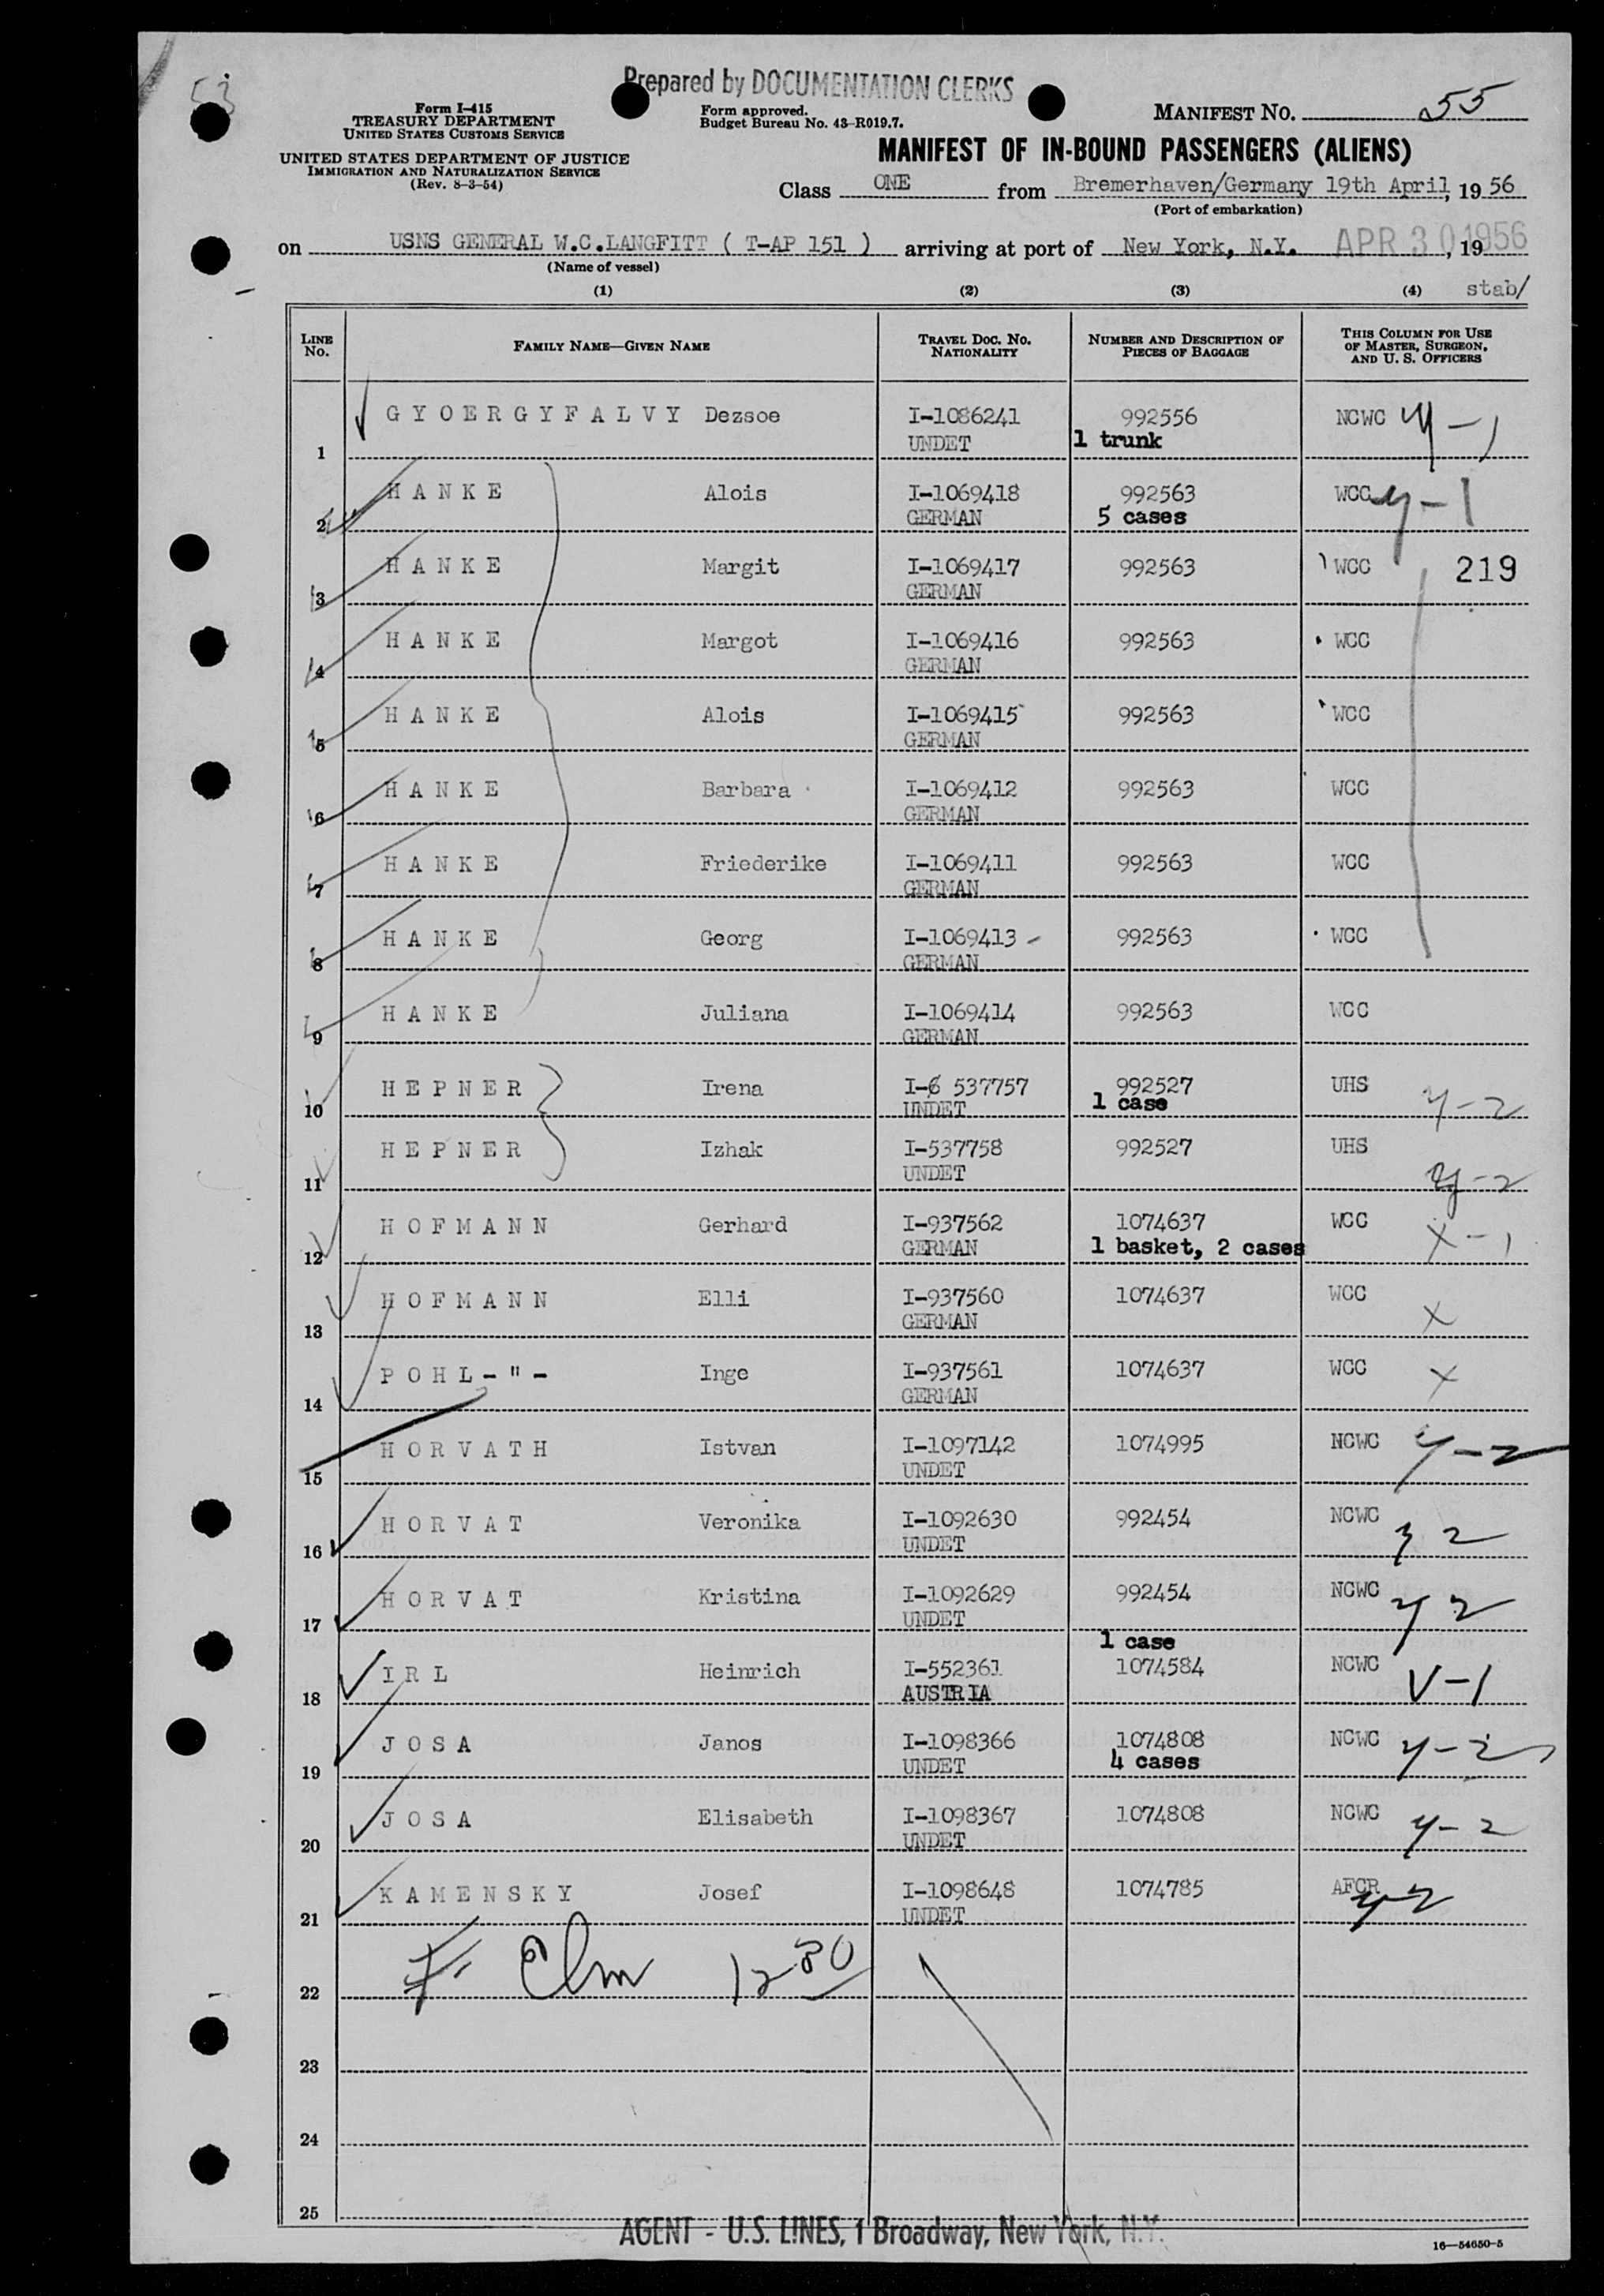 53
Prepared by DOCUMENTATION CLERKS
Form I-415
TREASURY DEPARTMENT
UNITED STATES CUSTOMS SERVICE
UNITED STATES DEPARTMENT OF JUSTICE
IMMIGRATION AND NATURALIZATION SERVICE
(Rev. 8-3-54)
Form approved.
Budget Bureau No. 43-R019.7.
MANIFEST NO. 55
MANIFEST OF IN-BOUND PASSENGERS (ALIENS)
Class ONE from Bremerhaven/Germany 19th April, 19 56
(Port of embarkation)
on USNS GENERAL W.C.LANGFITT ( T-AP 151 ) arriving at port of New York, N.Y. APR 30 1956, 19
(Name of vessel)
(1) (2) (3) (4) stab/
LINE No. FAMILY NAME—GIVEN NAME TRAVEL DOC. NO. NATIONALITY NUMBER AND DESCRIPTION OF PIECES OF BAGGAGE THIS COLUMN FOR USE OF MASTER, SURGEON, AND U. S. OFFICERS
G Y O E R G Y F A L V Y Dezsoe I-1086241 992556 NCWC y-1
1 UNDET 1 trunk
H A N K E Alois I-1069418 992563 WCC y-1
2 GERMAN 5 cases
H A N K E Margit I-1069417 992563 WCC 219
3 GERMAN
H A N K E Margot I-1069416 992563 WCC
4 GERMAN
H A N K E Alois I-1069415 992563 WCC
5 GERMAN
H A N K E Barbara I-1069412 992563 WCC
6 GERMAN
H A N K E Friederike I-1069411 992563 WCC
7 GERMAN
H A N K E Georg I-1069413 992563 WCC
8 GERMAN
H A N K E Juliana I-1069414 992563 WCC
9 GERMAN
H E P N E R Irena I-6 537757 992527 UHS y-2
10 UNDET 1 case
H E P N E R Izhak I-537758 992527 UHS y-2
11 UNDET
H O F M A N N Gerhard I-937562 1074637 WCC X-1
12 GERMAN 1 basket, 2 cases
H O F M A N N Elli I-937560 1074637 WCC X
13 GERMAN
P O H L - " - Inge I-937561 1074637 WCC X
14 GERMAN
H O R V A T H Istvan I-1097142 1074995 NCWC y-2
15 UNDET
H O R V A T Veronika I-1092630 992454 NCWC y 2
16 UNDET
H O R V A T Kristina I-1092629 992454 NCWC y 2
17 UNDET
1 case
I R L Heinrich I-552361 1074584 NCWC V-1
18 AUSTRIA
J O S A Janos I-1098366 1074808 NCWC y-2
19 UNDET 4 cases
J O S A Elisabeth I-1098367 1074808 NCWC y-2
20 UNDET
K A M E N S K Y Josef I-1098648 1074785 AFCR y-2
21 UNDET
22 Elm 12 30
23
24
25
AGENT - U.S. LINES, 1 Broadway, New York, N.Y.
16—54650-5